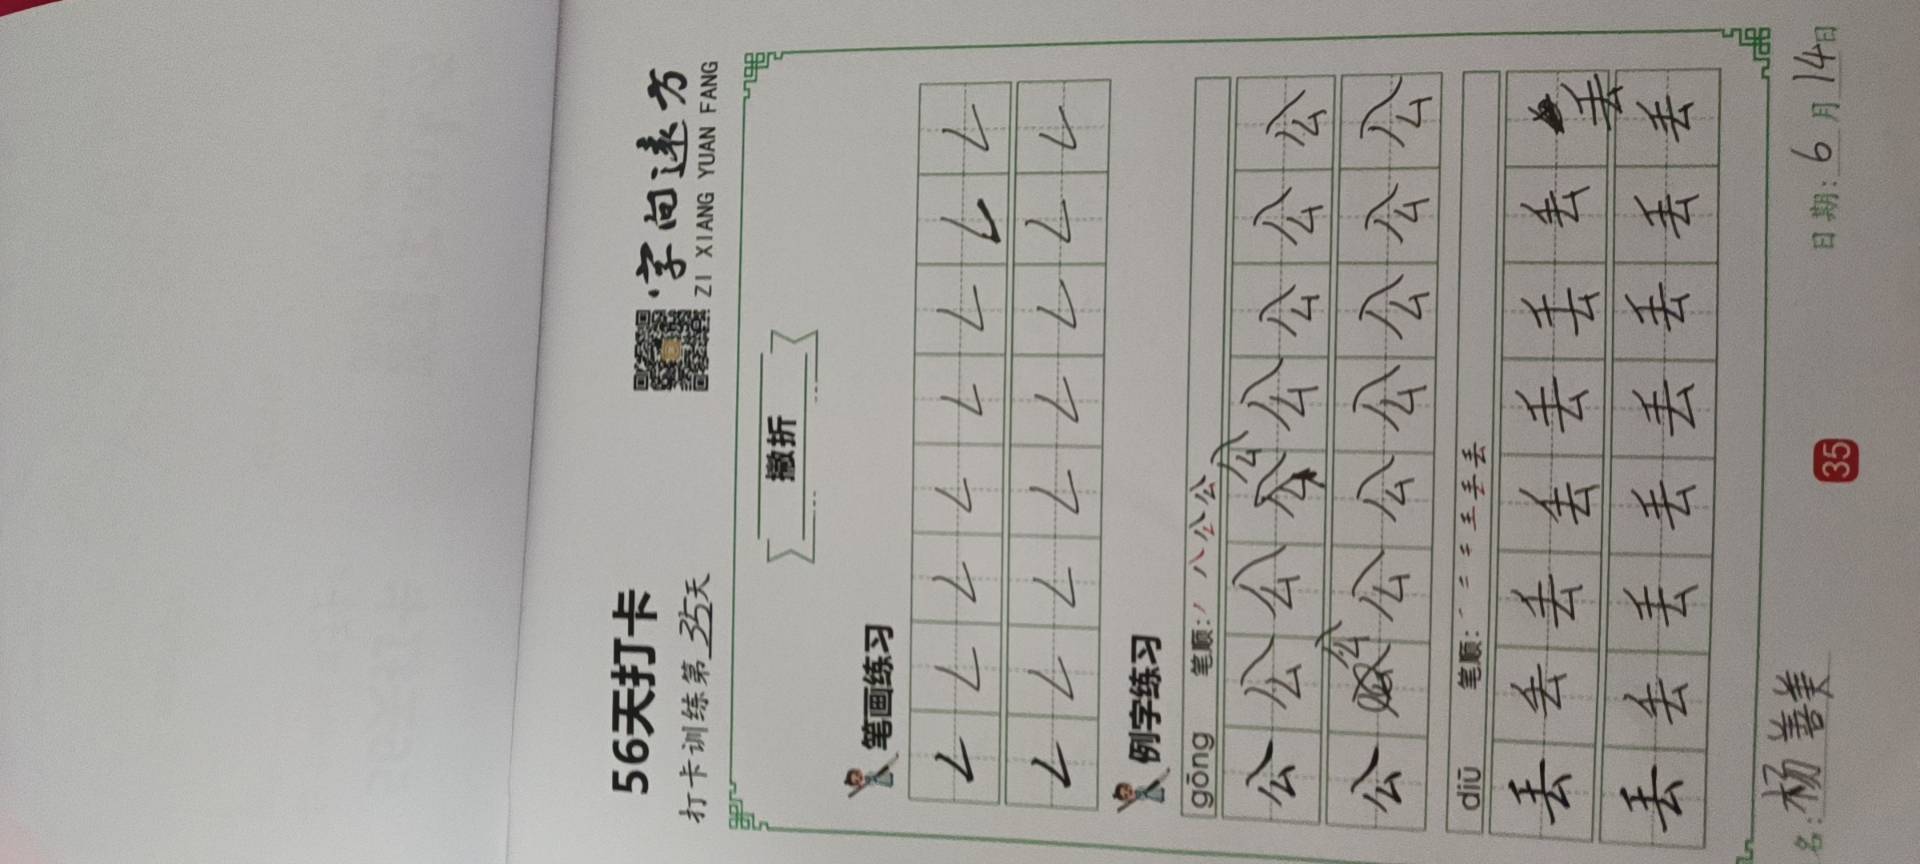 56天打卡
字向远方
ZI XIANG YUAN FANG
打卡训练第35天
撇折
笔画练习
𠃋 𠃋 𠃋 𠃋 𠃋 𠃋 𠃋 𠃋
𠃋 𠃋 𠃋 𠃋 𠃋 𠃋 𠃋 𠃋
例字练习
gōng 笔顺: 丿 八 公 公
公 公 公 公 公 公 公 公 公
公 公 公 公 公 公 公 公
diū 笔顺:
丢 丢 丢 丢 丢 丢 丢 丢
丢 丢 丢 丢 丢 丢 丢 丢
名: 杨善美 日期: 6月14日
35